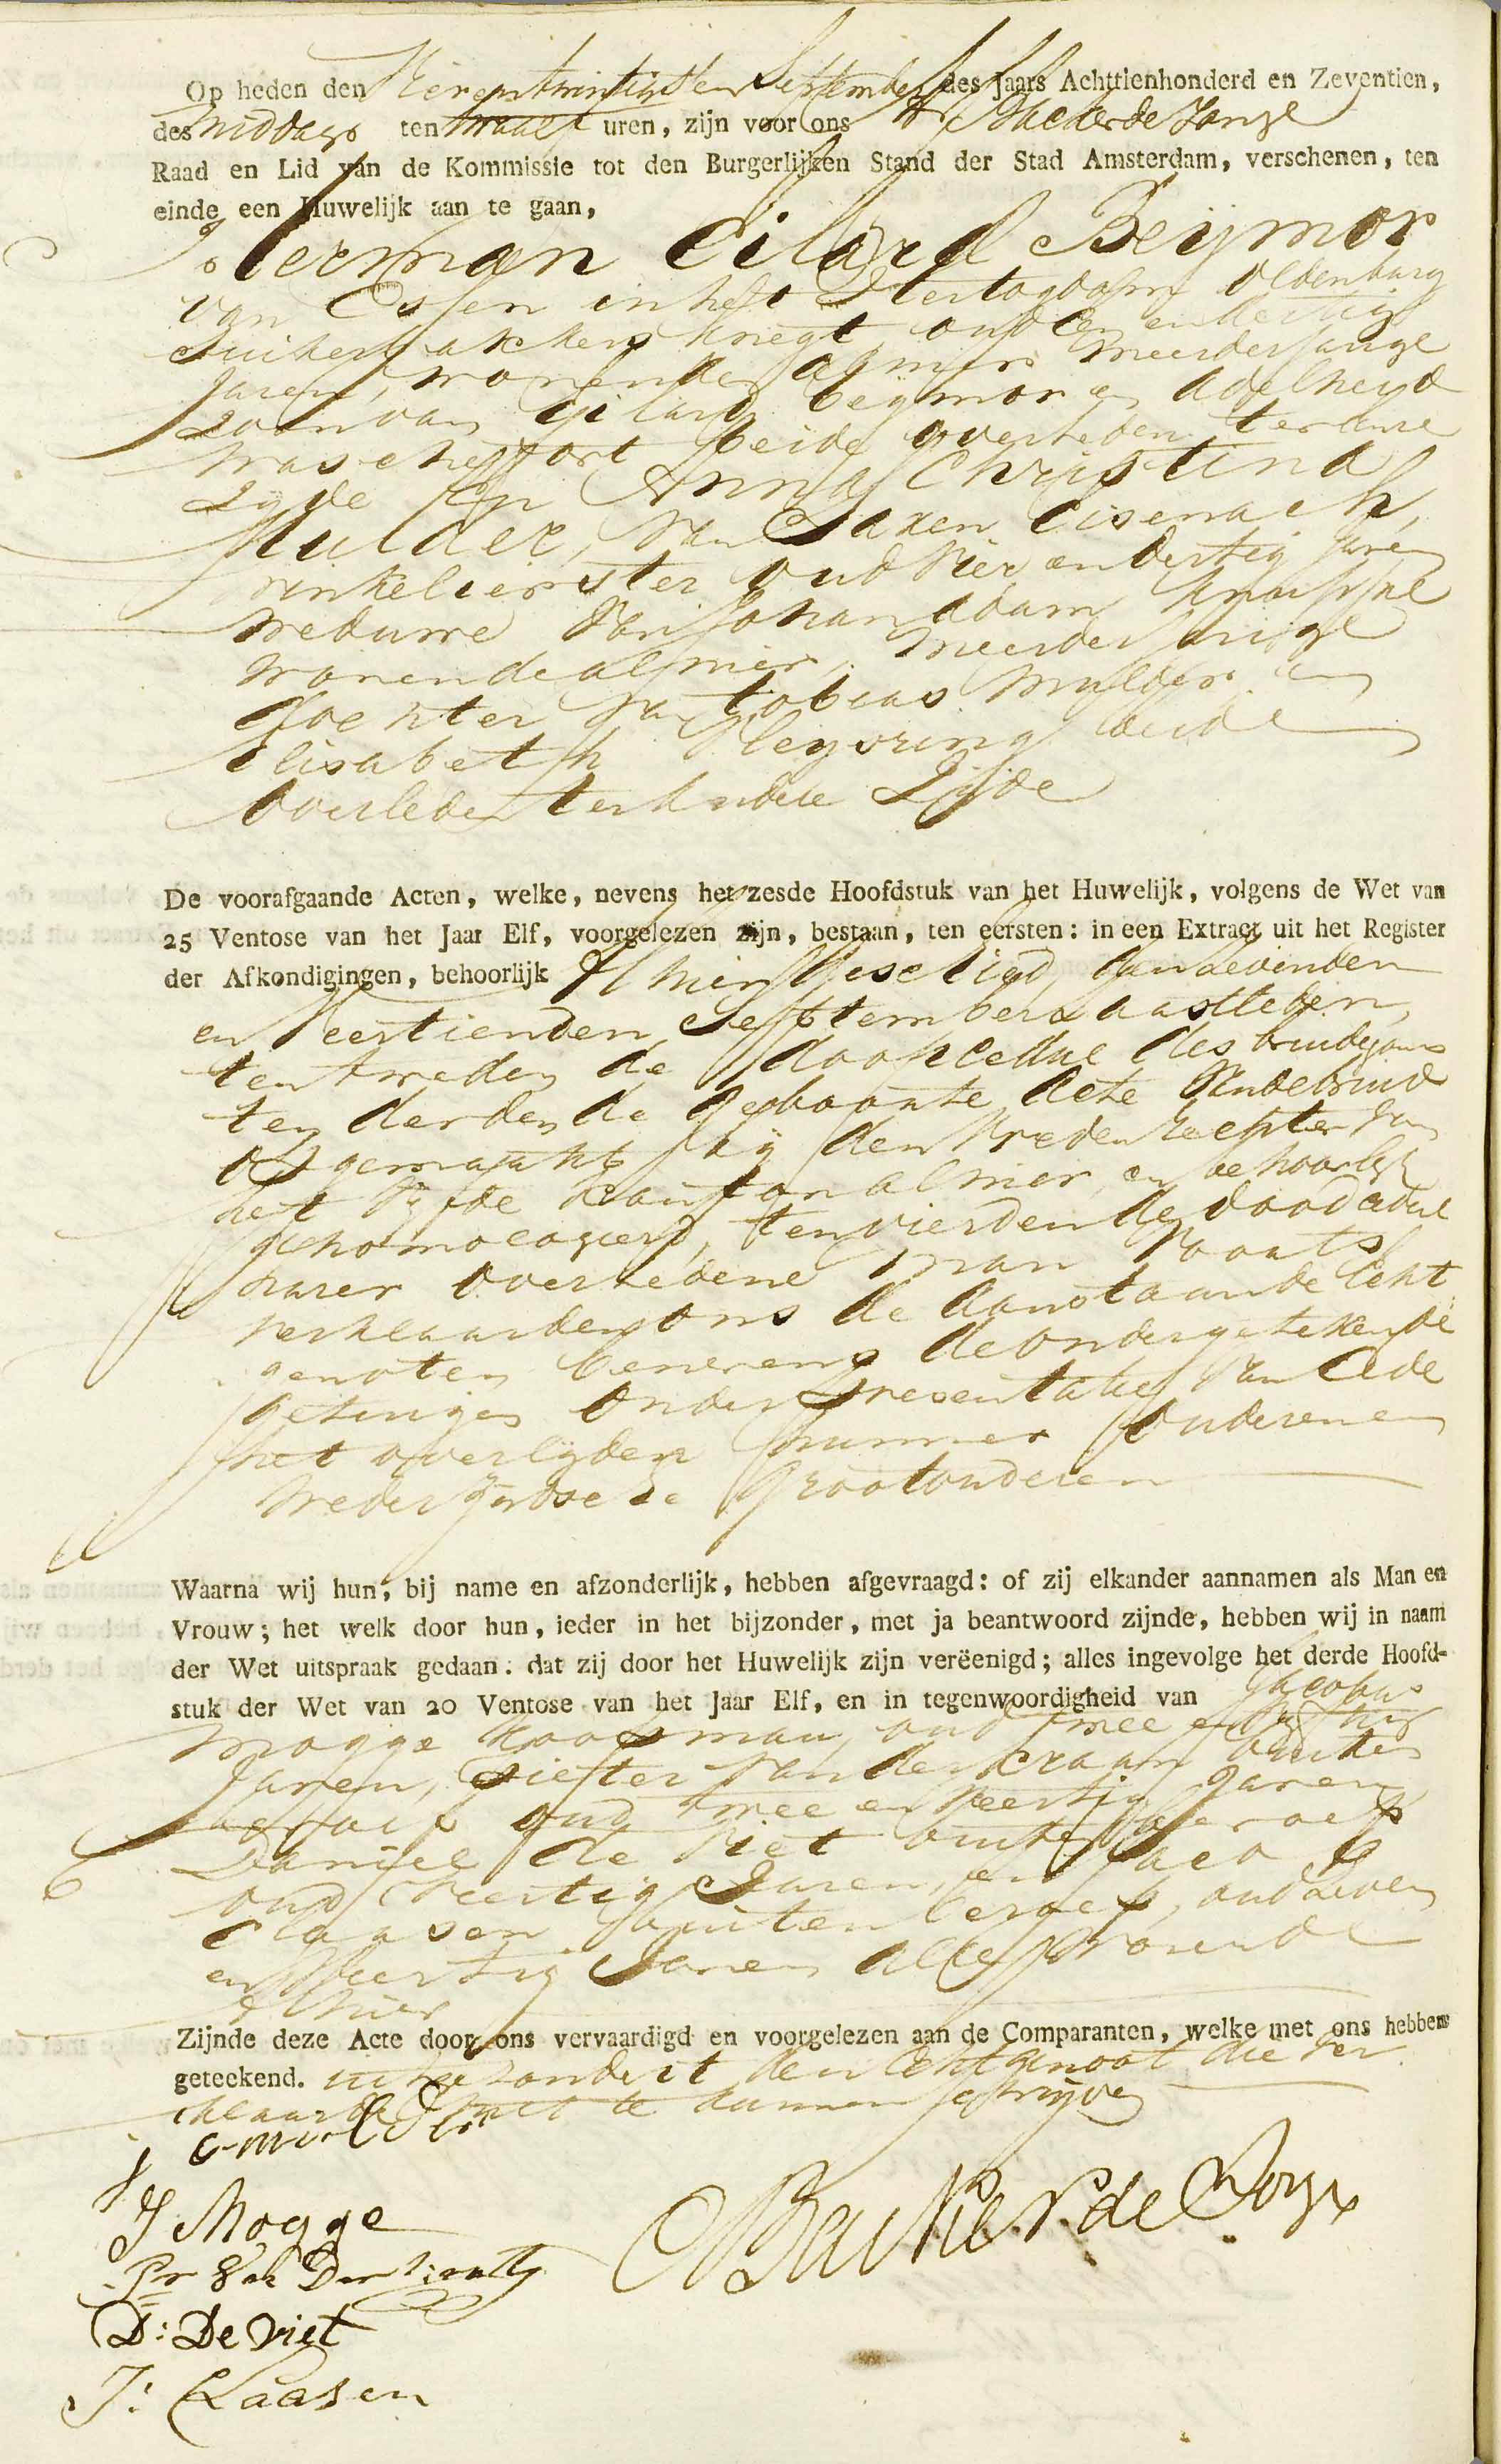 Op heden den Vierentwintigsten September des Jaars Achttienhonderd en Zeventien,
des middags ten twaalf uren, zijn voor ons Backer de Jonge
Raad en Lid van de Kommissie tot den Burgerlijken Stand der Stad Amsterdam, verschenen, ten
einde een Huwelijk aan te gaan,
Herman Eilard Beijmor
van Essen in het Hertogdom Oldenburg
suikerbakkers knegt, oud en dertig
jaren, wonende alhier meerderjarige
zoon van Eilard Beijmor en Adelheyd
beide overleden ter eenre
Zijde En Anna Christina
Mulder, van Saxen Eisenach,
winkelierster oud vier en dertig jaren
weduwe van Johan Adam
wonende alhier, meerderjarige
dochter van Tobias Mulder en
Elisabeth beide
overleden ter andere Zijde
De voorafgaande Acten, welke, nevens het zesde Hoofdstuk van het Huwelijk, volgens de Wet van
25 Ventose van het Jaar Elf, voorgelezen zijn, bestaan, ten eersten: in een Extract uit het Register
der Afkondigingen, behoorlijk Alhier geschied, den zevenden
en veertienden September laastleden,
ten tweeden de doopcedul des bruidegoms
ten derden de geboorte acte van de bruid
opgemaakt bij den vrederechter van
het vijfde kanton alhier, en behoorlijk
gehomologeerd, ten vierden de doodcedul
harer overledene man voorts
verklaarden ons de aanstaande Echt
genoten benevens de ondergetekende
getuigen onder presentatie van Eede
het overlijden hunner ouderen en
wederzijdsche grootouderen
Waarna wij hun, bij name en afzonderlijk, hebben afgevraagd: of zij elkander aannamen als Man en
Vrouw; het welk door hun, ieder in het bijzonder, met ja beantwoord zijnde, hebben wij in naam
der Wet uitspraak gedaan: dat zij door het Huwelijk zijn verëenigd; alles ingevolge het derde Hoofd-
stuk der Wet van 20 Ventose van het Jaar Elf, en in tegenwoordigheid van Jacobus
Mogge koopman, oud twee en
jaren, Pieter van der buiten
beroep oud twee en veertig jaren
Daniel de Viet buiten beroep
oud veertig jaren, en Jacob
Claasen buiten beroep, oud zeven
en veertig jaren alle wonende
Alhier
Zijnde deze Acte door ons vervaardigd en voorgelezen aan de Comparanten, welke met ons hebben
geteekend. uitgezondert den Echtgenoot die ver
klaarde niet te kunnen schrijven
J Mogge
Backer de Jonge
D: De Viet
J: Claasen